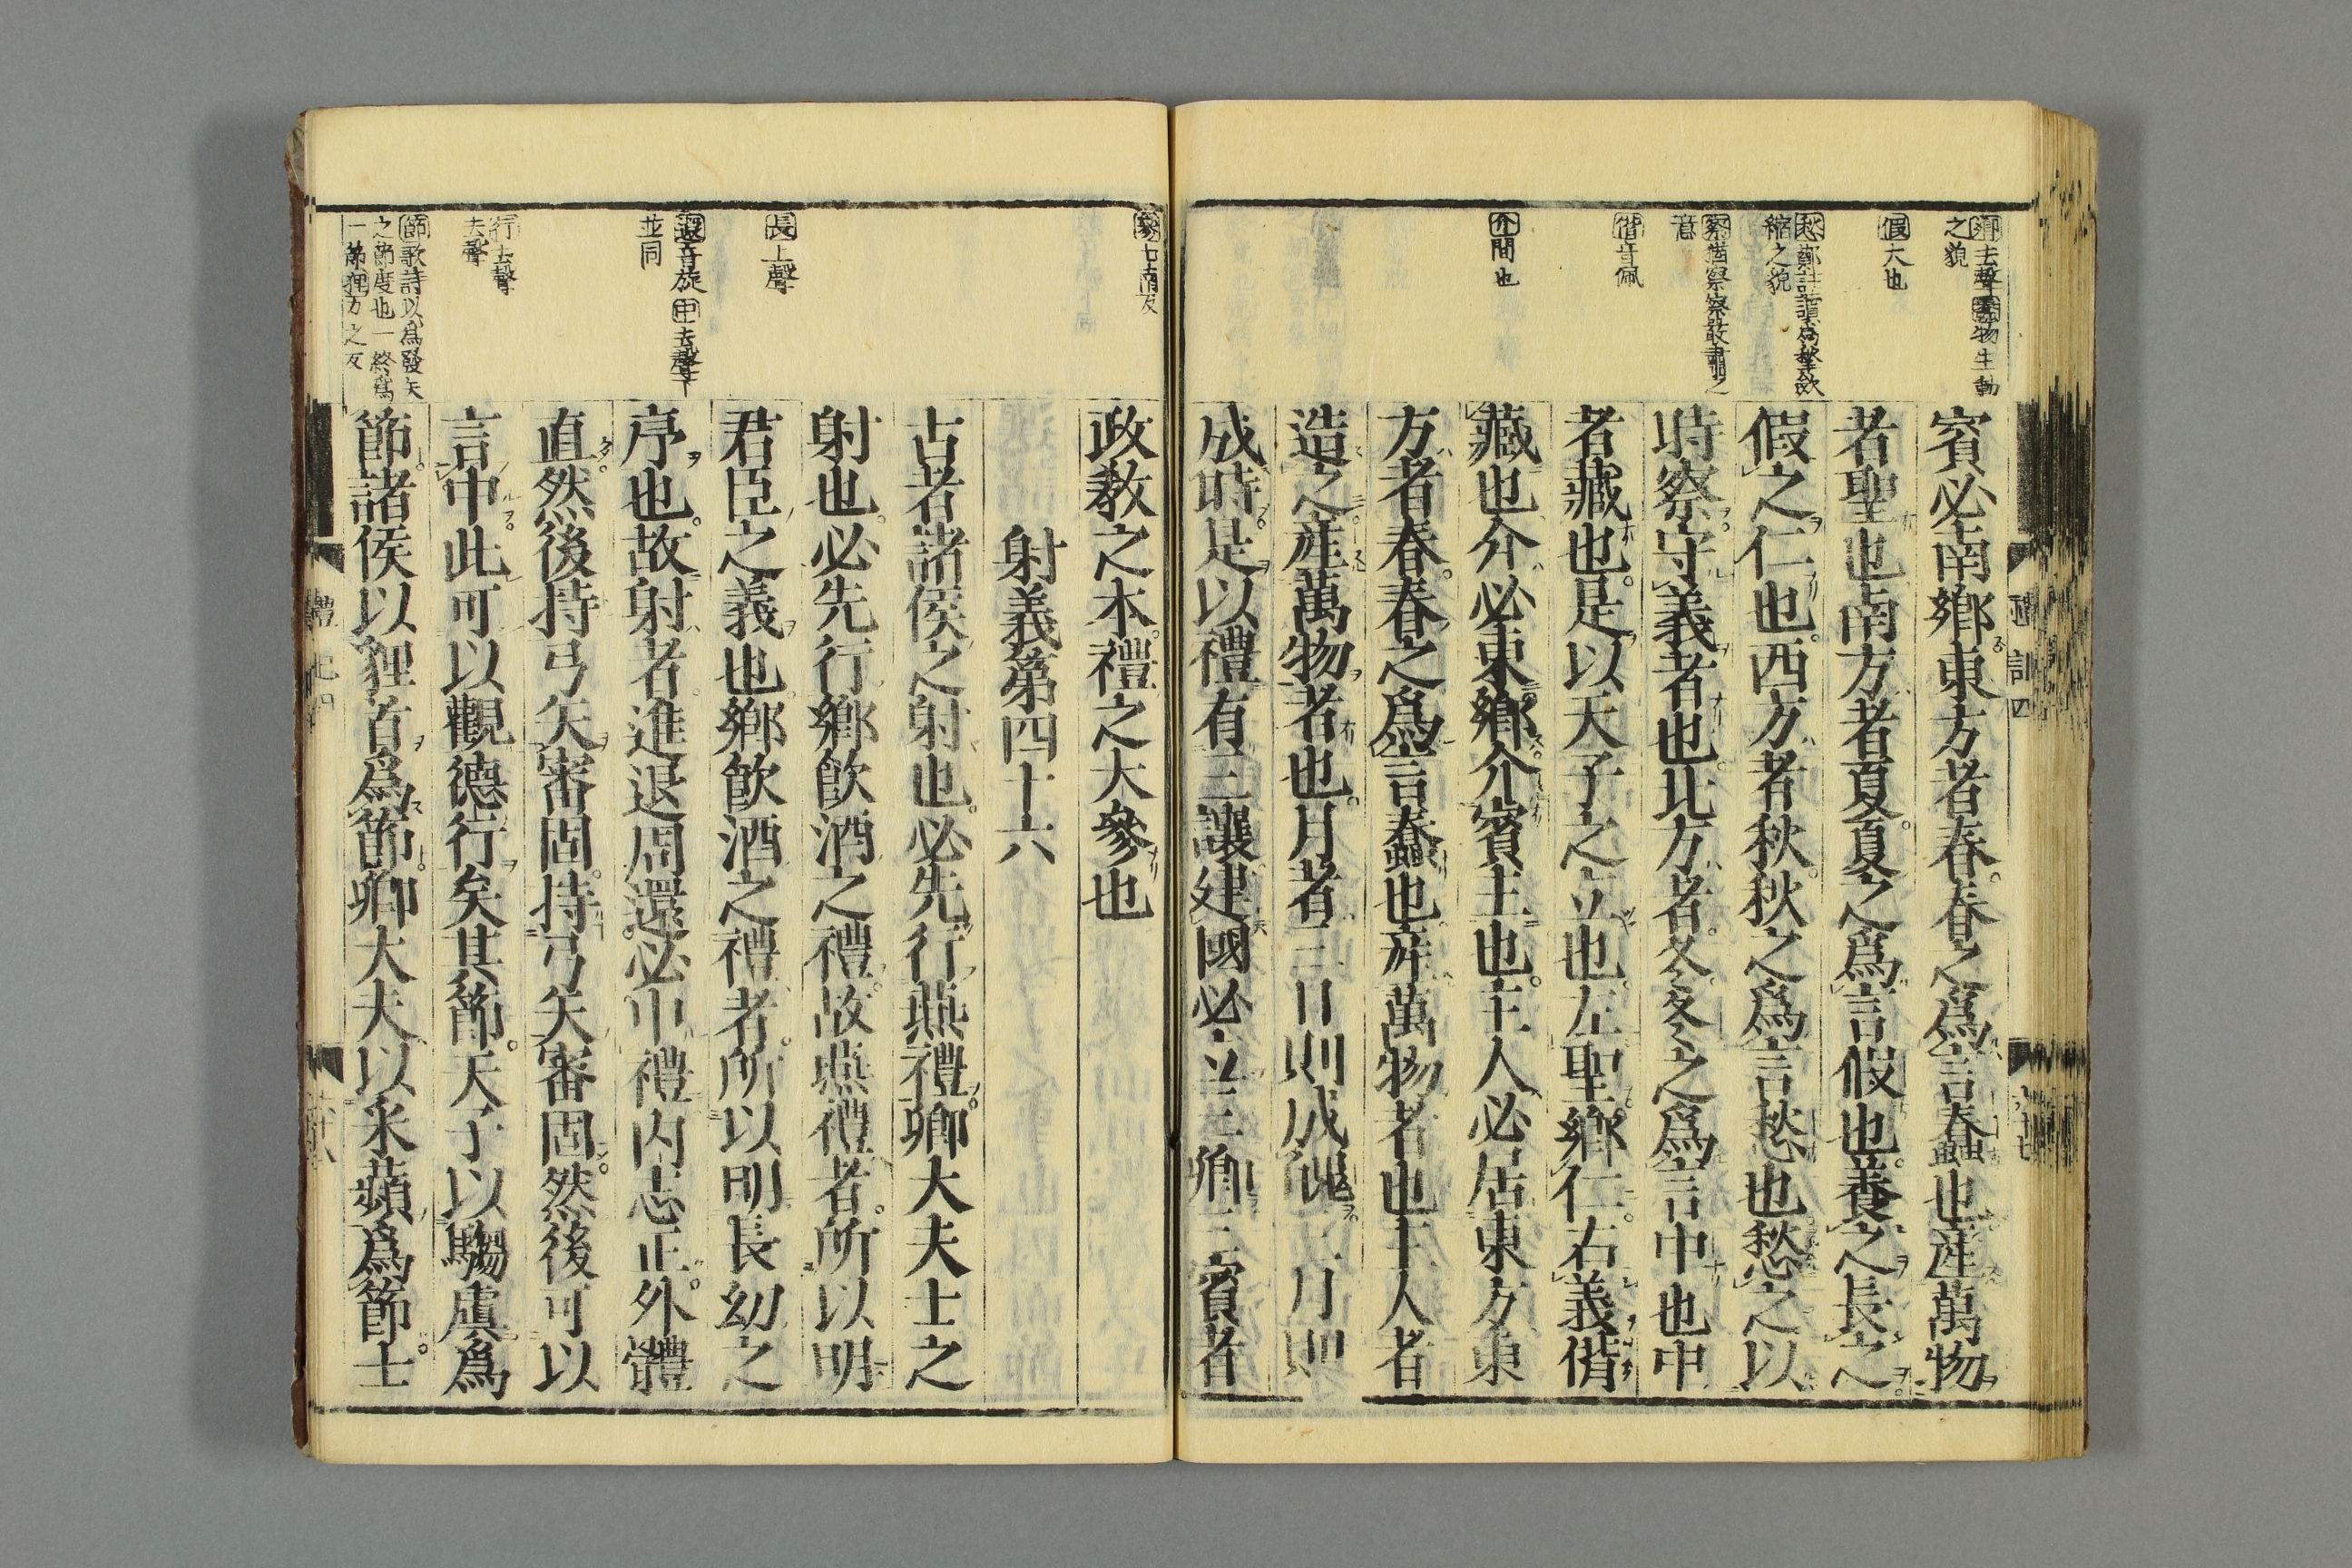 賓必南鄉東方者春春之爲言蠢也産萬物
者聖也南方者夏夏之爲言假也養之長之
假之仁也西方者秋秋之爲言愁也愁之以
時察守義者也北方者冬冬之爲言中也中
者藏也是以天子之立也左聖鄉仁右義偕
藏也介必東鄉介賓主也主人必居東方東
方者春春之爲言蠢也産萬物者也主人者
造之産萬物者也月者三日則成魄三月則
成時是以禮有三讓建國必立三卿三賓者
鄉去聲蠢物生動
之貌
假大也
愁鄭註讀爲揫斂
縮之貌
察猶察察嚴肅之
意
偕音佩
介間也
政敎之本禮之大參也
射義第四十六
古者諸侯之射也必先行燕禮卿大夫士之
射也必先行鄉飮酒之禮故燕禮者所以明
君臣之義也鄉飮酒之禮者所以明長幼之
序也故射者進退周還必中禮内志正外體
直然後持弓矢審固持弓矢審固然後可以
言中此可以觀德行矣其節天子以騶虞爲
節諸侯以狸首爲節卿大夫以采蘋爲節士
參七南反
長上聲
還音旋中去聲下
並同
行去聲
去聲
節歌詩以爲發矢
之節度也一終爲
一節狸力之反
禮記四